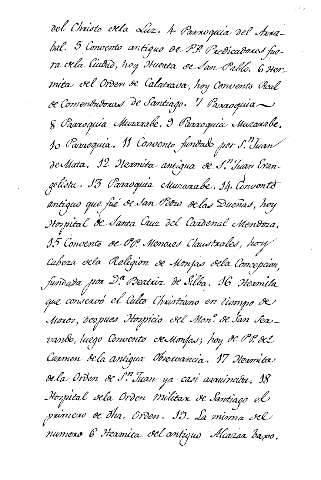 del Christo dela Luz. 4 Parroquia del Arra-
bal. 5 Convento antiguo de PP. Predicadores fue-
ra dela Ciudad, hoy Huerta de San Pablo. 6 Her-
mita del Orden de Calatrava, hoy Convento Real
de Comendadoras de Santiago. 7 Parroquia
8 Parroquia Muzarabe. 9 Parroquia Muzarabe.
10 Parroquia. 11 Convento fundado por Sn. Juan
de Mata. 12 Hermita antigua de Sn. Juan Evan-
gelista. 13 Parroquia Muzarabe. 14 Convento
antiguo que fué de San Pedro de las Dueñas, hoy
Hospital de Santa Cruz del Cardenal Mendoza.
15 Convento de PP. Monges Claustrales, hoy
Cabeza dela Religion de Monjas dela Concepcion,
fundada por Da. Beatriz de Silba. 16 Hermita
que conservó el Culto Christiano en tiempo de
Moros, despues Hospicio del Mono. de San Ser-
vando, luego Convento de Monjas; hoy de PP. del
Carmen de la antigua Observancia. 17 Hermita
de la Orden de Sn. Juan ya casi arruinada. 18
Hospital de la Orden militar de Santiago el
primero de dha. Orden. 19. La misma del
numero 6 Hermita del antiguo Alcazar baxo.